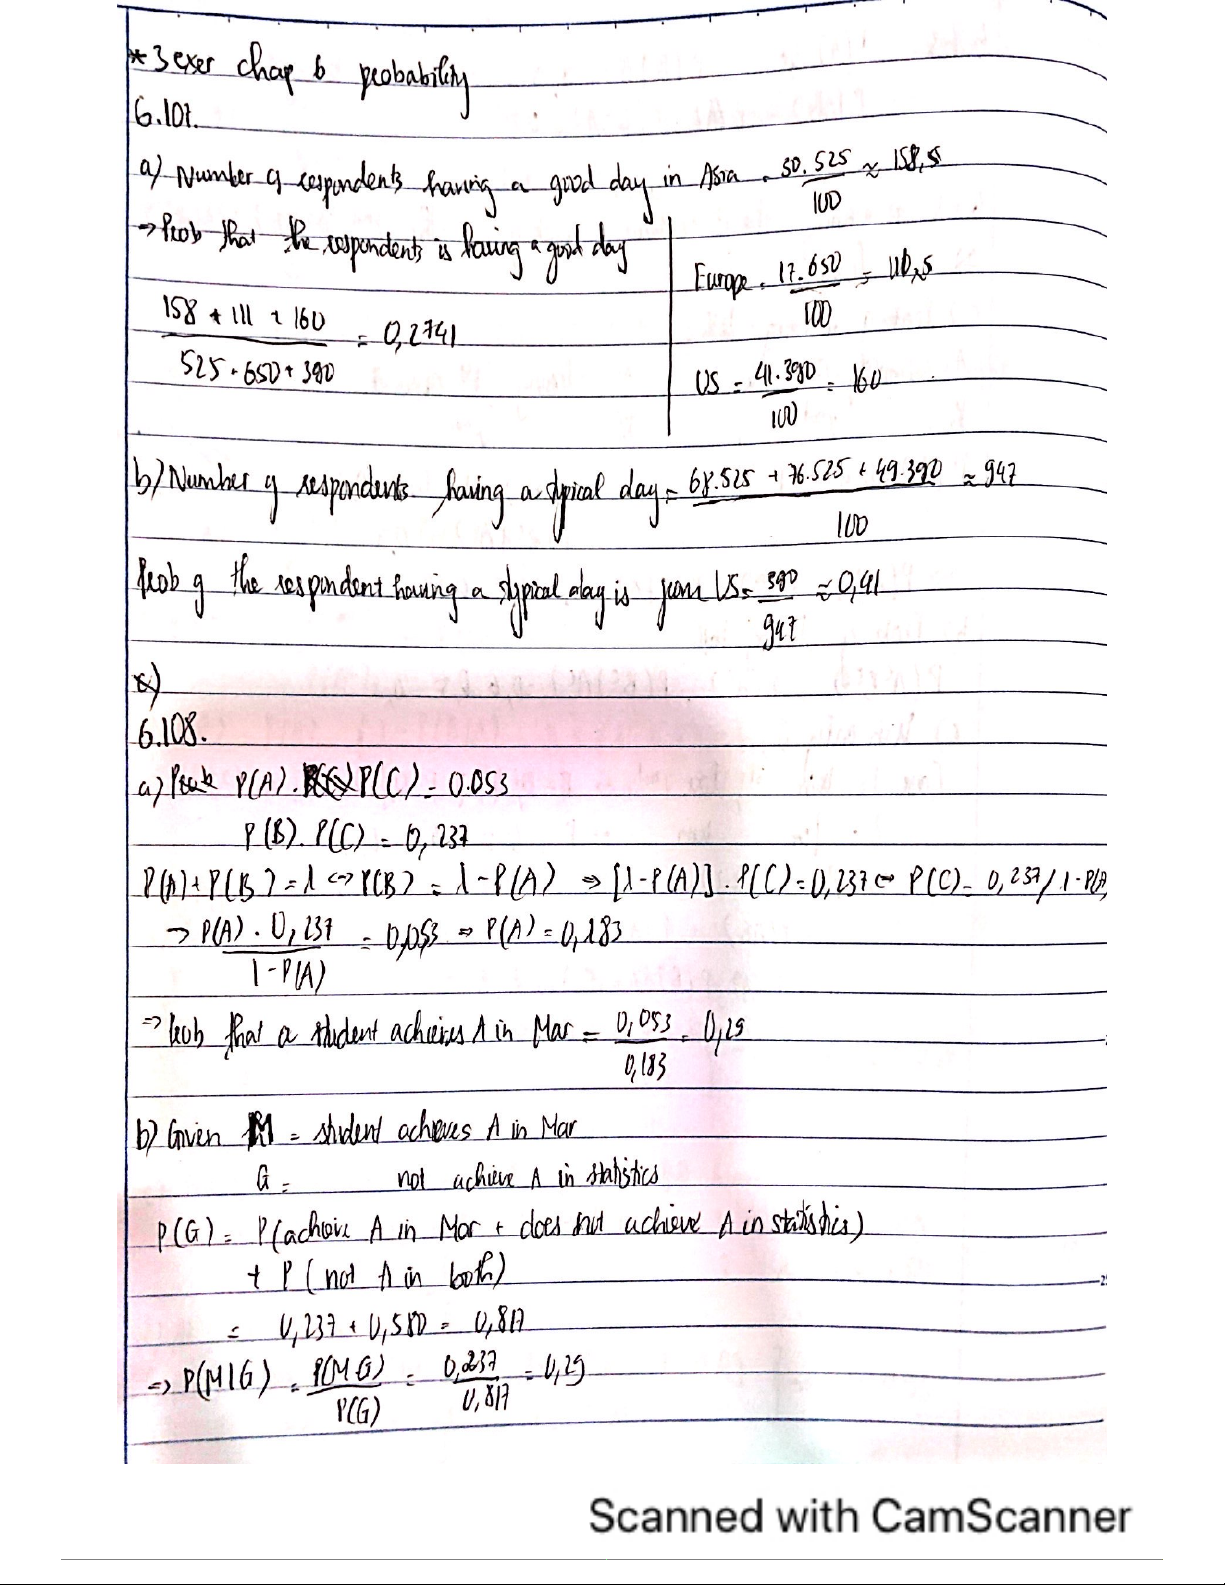 * 3 exer chap 6 probability
6.107.
a) Number of respondents having a good day in Asia = 30.525 / 100 ≈ 158,5
→ Prob that the respondents is having a good day
Europe = 17.650 / 100 = 110,5
158 + 111 + 160 / 525 + 650 + 390 = 0,2741
US = 41.390 / 100 = 160
b) Number of respondents having a typical day = 68.525 + 76.525 + 49.390 / 100 ≈ 947
Prob of the respondent having a typical day is from US = 390 / 947 ≈ 0,41
c)
6.108.
a) P(A). P(C) = 0.053
P(B). P(C) = 0,237
P(A) + P(B) = 1 ↔ P(B) = 1 - P(A) ⇒ [1 - P(A)] . P(C) = 0,237 ↔ P(C) = 0,237 / 1 - P(A)
→ P(A) . 0,237 / 1 - P(A) = 0,053 ⇒ P(A) = 0,183
⇒ Prob that a student achieves A in Mar = 0,053 / 0,183 = 0,29
b) Given M = student achieves A in Mar
G = not achieve A in statistics
P(G) = P(achieve A in Mar + does not achieve A in statistics)
+ P (not A in both)
= 0,237 + 0,580 = 0,817
⇒ P(M|G) = P(M G) / P(G) = 0,237 / 0,817 = 0,29
Scanned with CamScanner